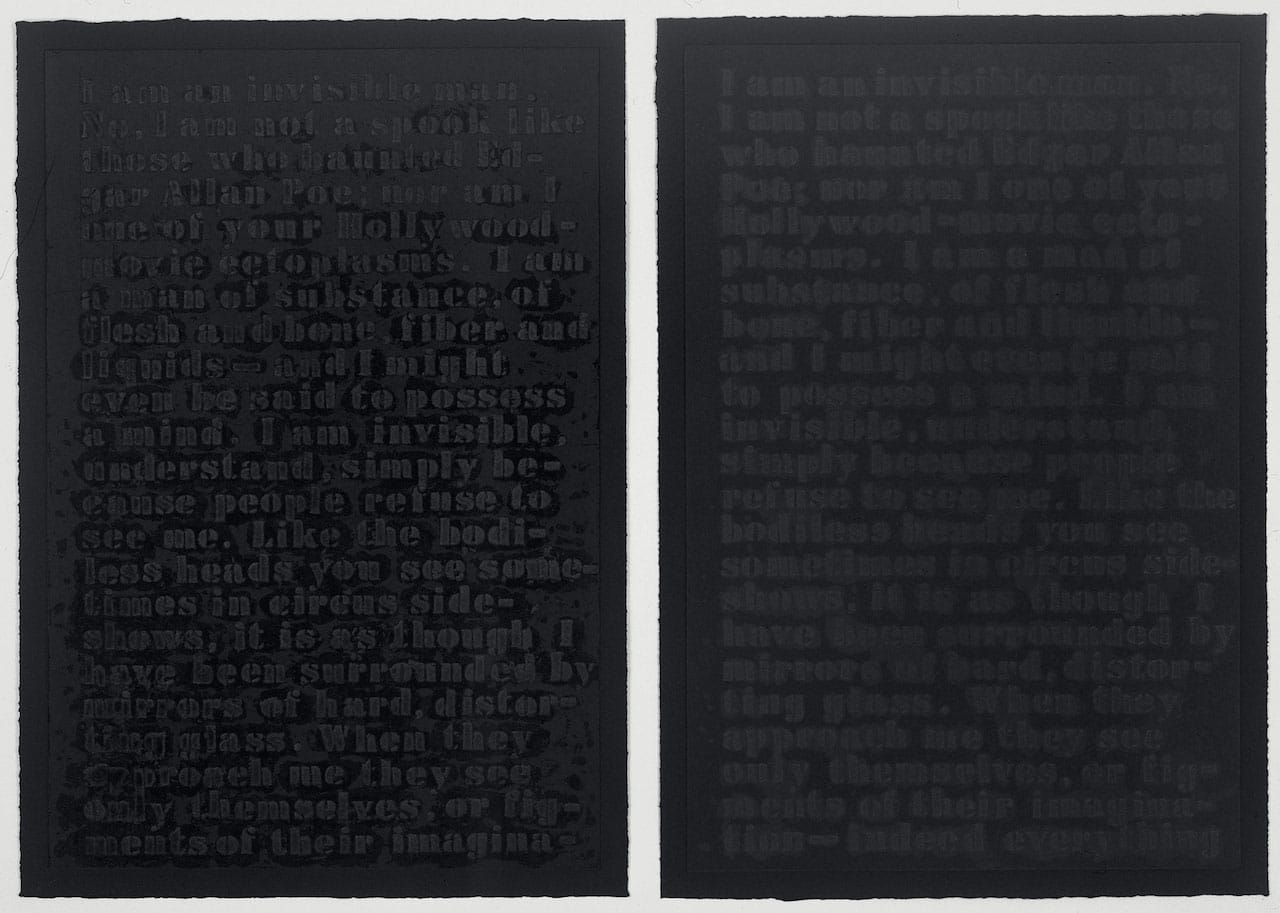 I am an invisible man.
No, I am not a spook like
those who haunted Ed-
gar Allan Poe; nor am I
one of your Hollywood-
movie ectoplasms. I am
a man of substance, of
flesh and bone, fiber and
liquids—and I might
even be said to possess
a mind. I am invisible,
understand, simply be-
cause people refuse to
see me. Like the bodi-
less heads you see some-
times in circus side-
shows, it is as though I
have been surrounded by
mirrors of hard, distor-
ting glass. When they
approach me they see
only themselves, or fig-
ments of their imagina-
I am an invisible man. No,
I am not a spook like those
who haunted Edgar Allan
Poe; nor am I one of your
Hollywood-movie ecto-
plasms. I am a man of
substance, of flesh and
bone, fiber and liquids—
and I might even be said
to possess a mind. I am
invisible, understand,
simply because people
refuse to see me. Like the
bodiless heads you see
sometimes in circus side-
shows, it is as though I
have been surrounded by
mirrors of hard, distor-
ting glass. When they
approach me they see
only themselves, or fig-
ments of their imagina-
tion—indeed everything